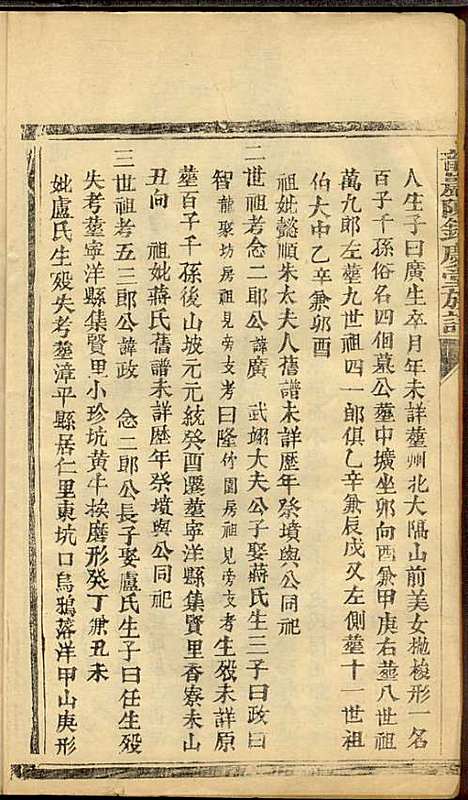 人生子曰廣生卒月年未詳塟州北大隔山前美女拋梭形一名
百子千孫俗名四個墓公塟中壙坐卯向酉兼甲庚右塟八世祖
萬九郎左塟九世祖四一郎俱乙辛兼辰戌又左側塟十一世祖
伯大中乙辛兼卯酉
祖妣懿順朱太夫人舊譜未詳歷年祭墳與公同祀
二世祖考念二郎公諱廣 武翊大夫公子娶蔣氏生三子曰政曰
智龍聚坊房祖見旁支考曰隆竹園房祖見旁支考生殁未詳原
塟百子千孫後山坡元元統癸酉遷塟寧洋縣集賢里香寮未山
丑向 祖妣蔣氏舊譜未詳歷年祭墳與公同祀
三世祖考五三郎公諱政 念二郎公長子娶盧氏生子曰任生殁
失考塟寧洋縣集賢里小珍坑黃牛挨磨形癸丁兼丑未
妣盧氏生殁失考塟漳平縣居仁里東坑口烏鴉落洋甲山庚形